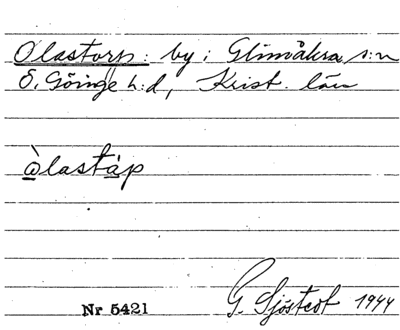 Olastorp: by i Glimåkra s:n
Ö. Göinge h:d, Krist. län
àlastáp
Nr 5421
G. Sjöstedt 1944